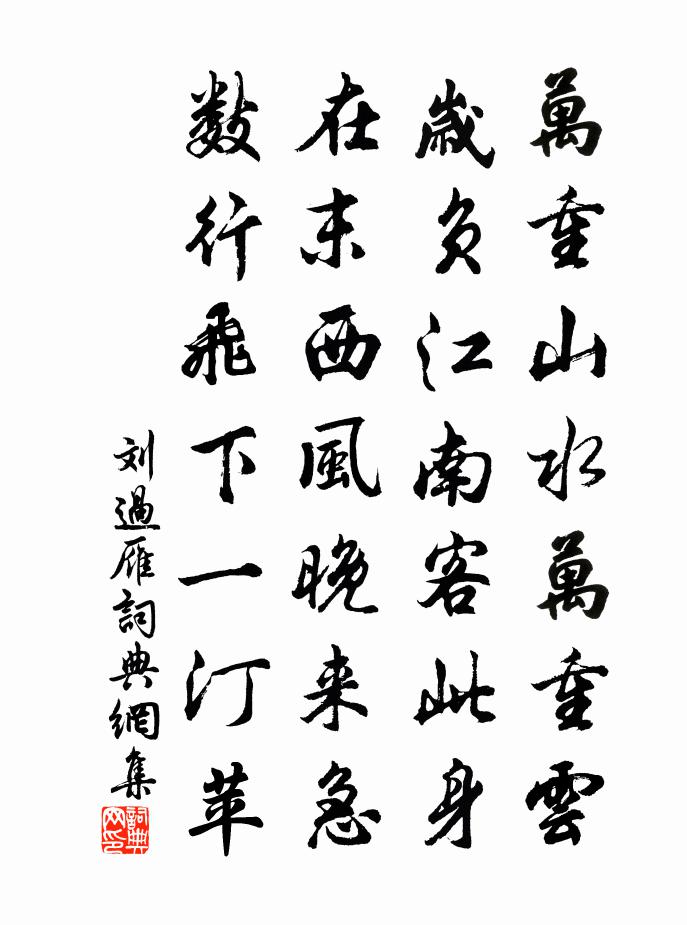 萬重山水萬重雲
歲负江南客此身
在末西風晚来急
数行飛下一汀苹
刘過雁詞典網集
詞典网印